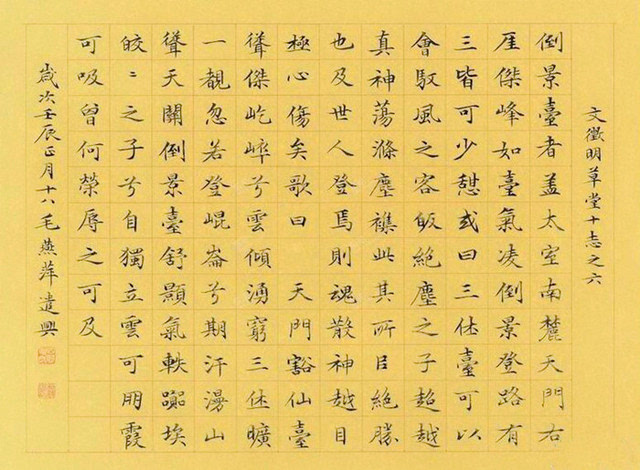 文徵明草堂十志之六
倒景臺者蓋太室南麓天門右
厓傑峰如臺氣凌倒景登路有
三皆可少憇或曰三休臺可以
會馭風之客皈絶塵之子超越
真神蕩滌塵襟此其所㠯絶勝
也及世人登焉則魂散神越目
極心傷矣歌曰 天門豁仙臺
聳傑屹崪兮雲傾湧窮三休曠
一覩忽若登崐崙兮期汗漫山
聳天關倒景臺舒顥氣軼埃
皎〻之子兮自獨立雲可朋霞
可吸曾何榮辱之可及
歲次壬辰正月十八毛燕萍遣興